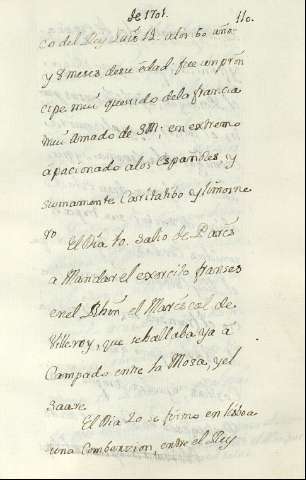 de 1701. 110.
co del Rey Luis 13. a los 60 año
y 8 meses de su edad. fue un prin
cipe mui querido de la francia
mui Amado de SM; en extremo
apacionado a los Españoles, y
sumamente Caritatibo y limosne
ro
El Dia 10. salio de Paris
a Mandar el exercito franses
en el Rhin, el Mariscal de
Villeroy, que se hallaba ya á
Campado entre la Mosa, y el
Saare.
El Dia 20 se firmo en lisboa
una Combencion, entre el Rey